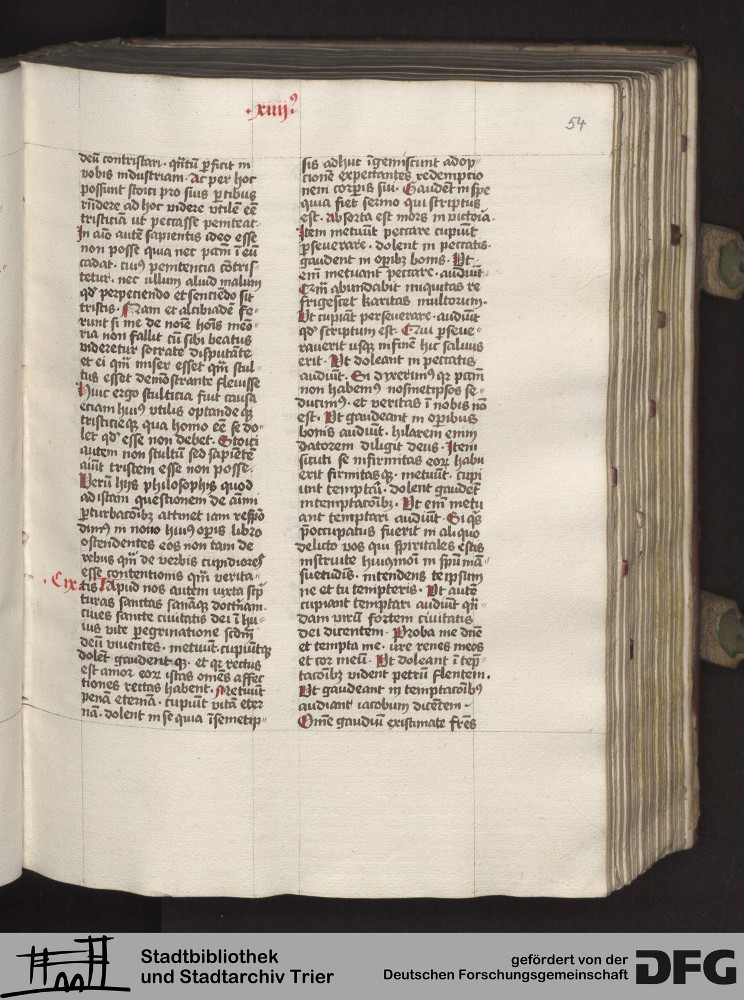 ·xiiij⁹
54
deū contristari · qn̄tū ꝑficit in
vobis industriam · Ac per hoc
possunt stoici pro suis ꝑtibus
rn̄dere ad hoc videre vtilē eē
tristiciā ut peccasse peniteat ·
In aīo autē sapientis ideo esse
non posse quia nec pctm̄ ī eū
cadat · cuiꝰ penitencia cōtris
tetur · nec ullum aliud malum
qd̓ perpeciendo et sentiēdo sit
tristis · Nam et alcibiadē fe
runt si me de noīe hoīs meō
ria non fallit cū sibi beatus
videretur socrate disputāte
et ei qm̄ miser esset qm̄ stul
tus esset demōstrante fleuisse
Huic ergo stulticia fuit causa
eciam huiꝰ vtilis optande qꝫ
tristicie qꝫ qua homo eē se do
let qd̓ esse non debet · Stoici
autem non stultū sed sapiētē
aiūt tristem esse non posse ·
Verū hijs philosophis quod
ad istam questionem de aīmi
ꝑturbacōībꝫ attinet iam respō
dimꝰ in nono huiꝰ opis libro
ostendentes eos non tam de
rebus qm̄ de verbis cupidiores
esse contentionis qm̄ verita
· C ix · tis Apud nos autem iuxta sc̄p
turas sanctas sanāqꝫ doctnām
ciues sancte ciuitatis dei ī hu
ius vite peregrinatione scdm̄
deū viuentes · metuūt · cupiūtqꝫ
dolēt gaudentqꝫ · et qꝛ rectus
est amor eoꝝ istas omēs affec
tiones rectas habent · Metuūt
penā eternā · cupiūt vitā eter
nā · dolent in se quia īsemetip
sis adhuc īgemiscunt adop
cionē expectantes redemptio
nem corpis sui · Gaudēt in spe
quia fiet sermo qui scriptus
est · Absorta est mors in victoria ·
Item metuūt peccare cupiūt
ꝑseuerare · dolent in peccatis ·
gaudent in opibꝫ bonis · Vt
em̄ metuant peccare · audiūt
Qm̄ abundabit iniquitas re
frigescet karitas multorum ·
Vt cupiāt perseuerare · audiūt
qd̓ scriptum est · Qui ꝑseue
rauerit usqꝫ in finē hic saluus
erit · Vt doleant in peccatis
audiūt · Si dyxerimꝰ qꝛ pctm̄
non habemꝰ nosmetipsos se
ducimꝰ · et veritas ī nobis nō
est · Vt gaudeant in opibus
bonis audiūt · hilarem enim
datorem diligit deus · Item
sicuti se infirmitas eoꝝ habu
erit firmitasqꝫ · metuūt · cupi
unt temptari · dolent gaudēt
in temptacōībꝫ · Vt em̄ metu
ant temptari audiūt · Si qs
p̄occupatus fuerit in aliquo
delicto vos qui spiritales estis
instruite huiꝰmoi in spū mā
suetudīs · intendens teipsum
ne et tu tempteris · Vt autē
cupiant temptari audiūt qn̄
dam virū fortem ciuitatis
dei dicentem · Proba me dn̄e
et tempta me · ure renes meos
et cor meū · Vt doleant ī tēp
tacōībꝫ vident petrū flentem ·
Vt gaudeant in temptacōībꝫ
audiant iacobum dicētem ·
Om̄e gaudiū existimate fr̄es
Stadtbibliothek
und Stadtarchiv Trier
gefördert von der
Deutschen Forschungsgemeinschaft
DFG